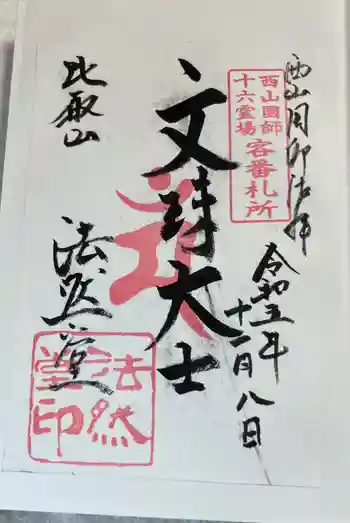 西山國師
十六霊場
客番札所
令和五年
十一月八日
文殊大士
比叡山
法然堂
法然
堂印